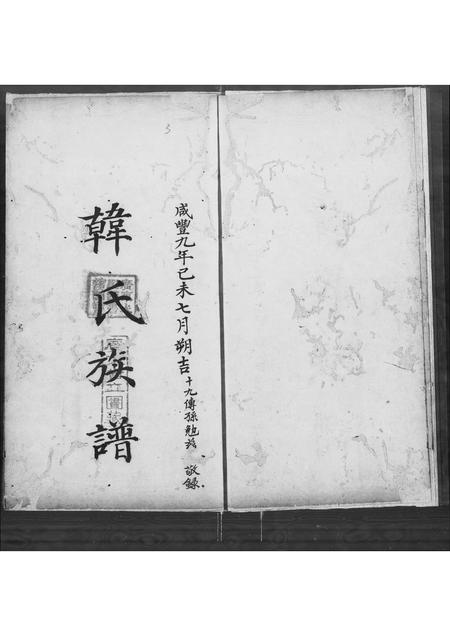 咸豐九年己未七月朔吉十九傳孫勉茲敬録
韓氏族譜